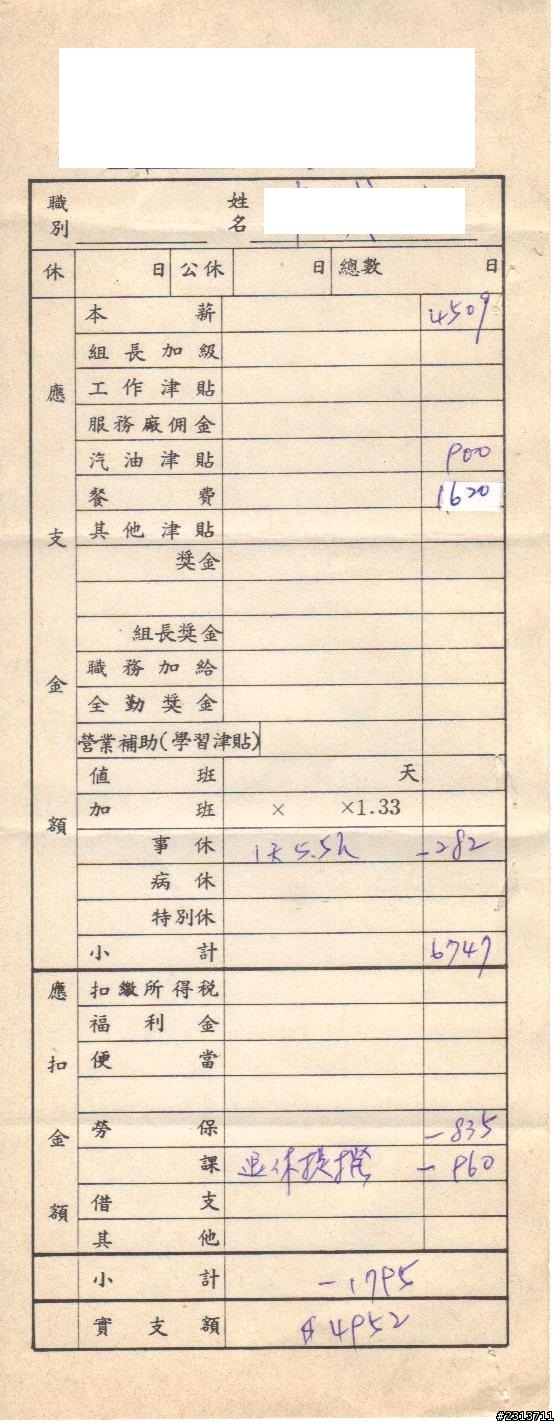 職別 姓名
休 日 公休 日 總數 日
應支金額
本薪 4509
組長加級
工作津貼
服務廠佣金
汽油津貼 900
餐費 1620
其他津貼
獎金
組長獎金
職務加給
全勤獎金
營業補助(學習津貼)
值班 天
加班 × ×1.33
事休 1天5.5h -282
病休
特別休
小計 6747
應扣金額
扣繳所得稅
福利金
便當
勞保 -835
課 退休提撥 -960
借支
其他
小計 -1795
實支額 $4952
#2313711